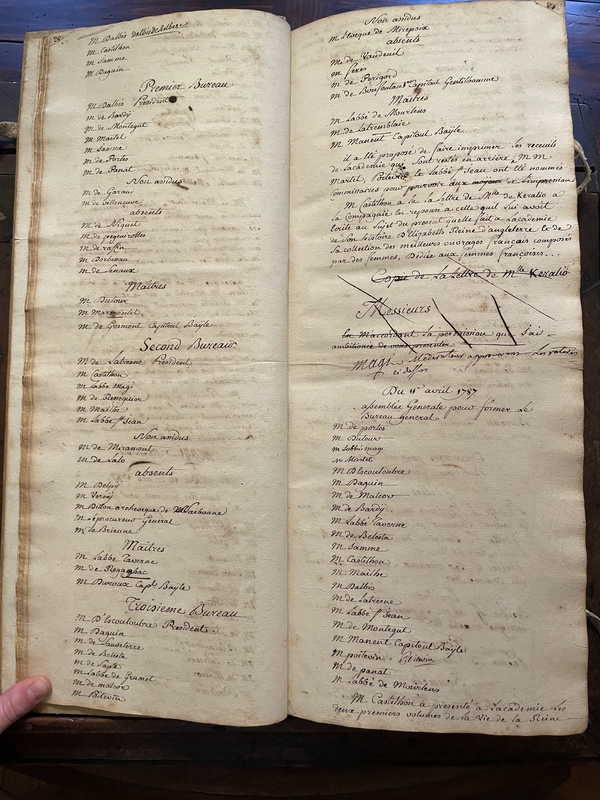 M Dalbis
M Castilhon
M Samme
M Daguin
Premier Bureau
M Dalbis President
M de Bardy
M de Montegut
M Martel
M Samme
M de Portes
M de Panat
Non assidus
M de Garau
M de
absents
M de Niquet
M de
M de raffin
M
M de Senaux
Maitres
M Dutour
M Marmontel
M de Gramont Capitoul Bayle
Second Bureau
M de Latresne President
M Castilhon
M Labbé Magi
M de
M Mailhe
M Labbé St Jean
Non assidus
M de Miramont
M de Lalo
absents
M Delpy
M Verny
M Dillon archeveque de Narbonne
M Le procureur General
M de Brienne
Maitres
M Labbé Taverne
M de
M Duroux Capl Bayle
Troisieme Bureau
M D'Escouloubre President
M Daguin
M de
M de Belesta
M de Sapte
M Labbé de Grumet
M de malcor
M Poitevin
Non assidus
M Leveque de Mirepoix
absents
M de Vaudreuil
M
M de Perigord
M de Bonfontan 1er Capitoul Gentilhomme
Maitres
M Labbé de Mourlens
M de Latremblaie
M Manent Capitoul Bayle
il a eté proposé de faire imprimer les recueils
de Lacademie qui sont restés en arriere, M M
Martel, Poitevin et Labbé St Jean ont été nommés
Commissaires pour pourvoir aux moyens et Limpression
M Castilhon a lu la Lettre de Mlle de Keralio a
la Compagnie en reponse a celle quil lui avoit
ecrite au sujet du present quelle fait a Lacademie
de Son histoire D'Elizabeth Reine d'angleterre et de
Sa collection des meilleurs ouvrages français composés
par des femmes, Dediée aux femmes françoises...
Copie de la Lettre de Mlle Keralio
Messieurs
en Maccordant la permission que jai
ambitionée de vous presenter
Magi Moderateur approuvant les ratures
ci dessus
Du 11 avril 1787
assemblée Generale pour former le
Bureau general.
M de portes
M Dutour
M Labbé magi
M Martel
M D'Escouloubre
M Daguin
M de Malcor
M de Bardy
M Labbé Taverne
M de Belesta
M Samme
M Castilhon
M Mailhe
M Dalbis
M de Latresne
M Labbé St Jean
M de Montegut
M Manent Capitoul Bayle
M poitevin
M de panat
M Labbé de Mourlens
M Castilhon a presenté a Lacademie Les
deux premiers volumes de la Vie de la Reine